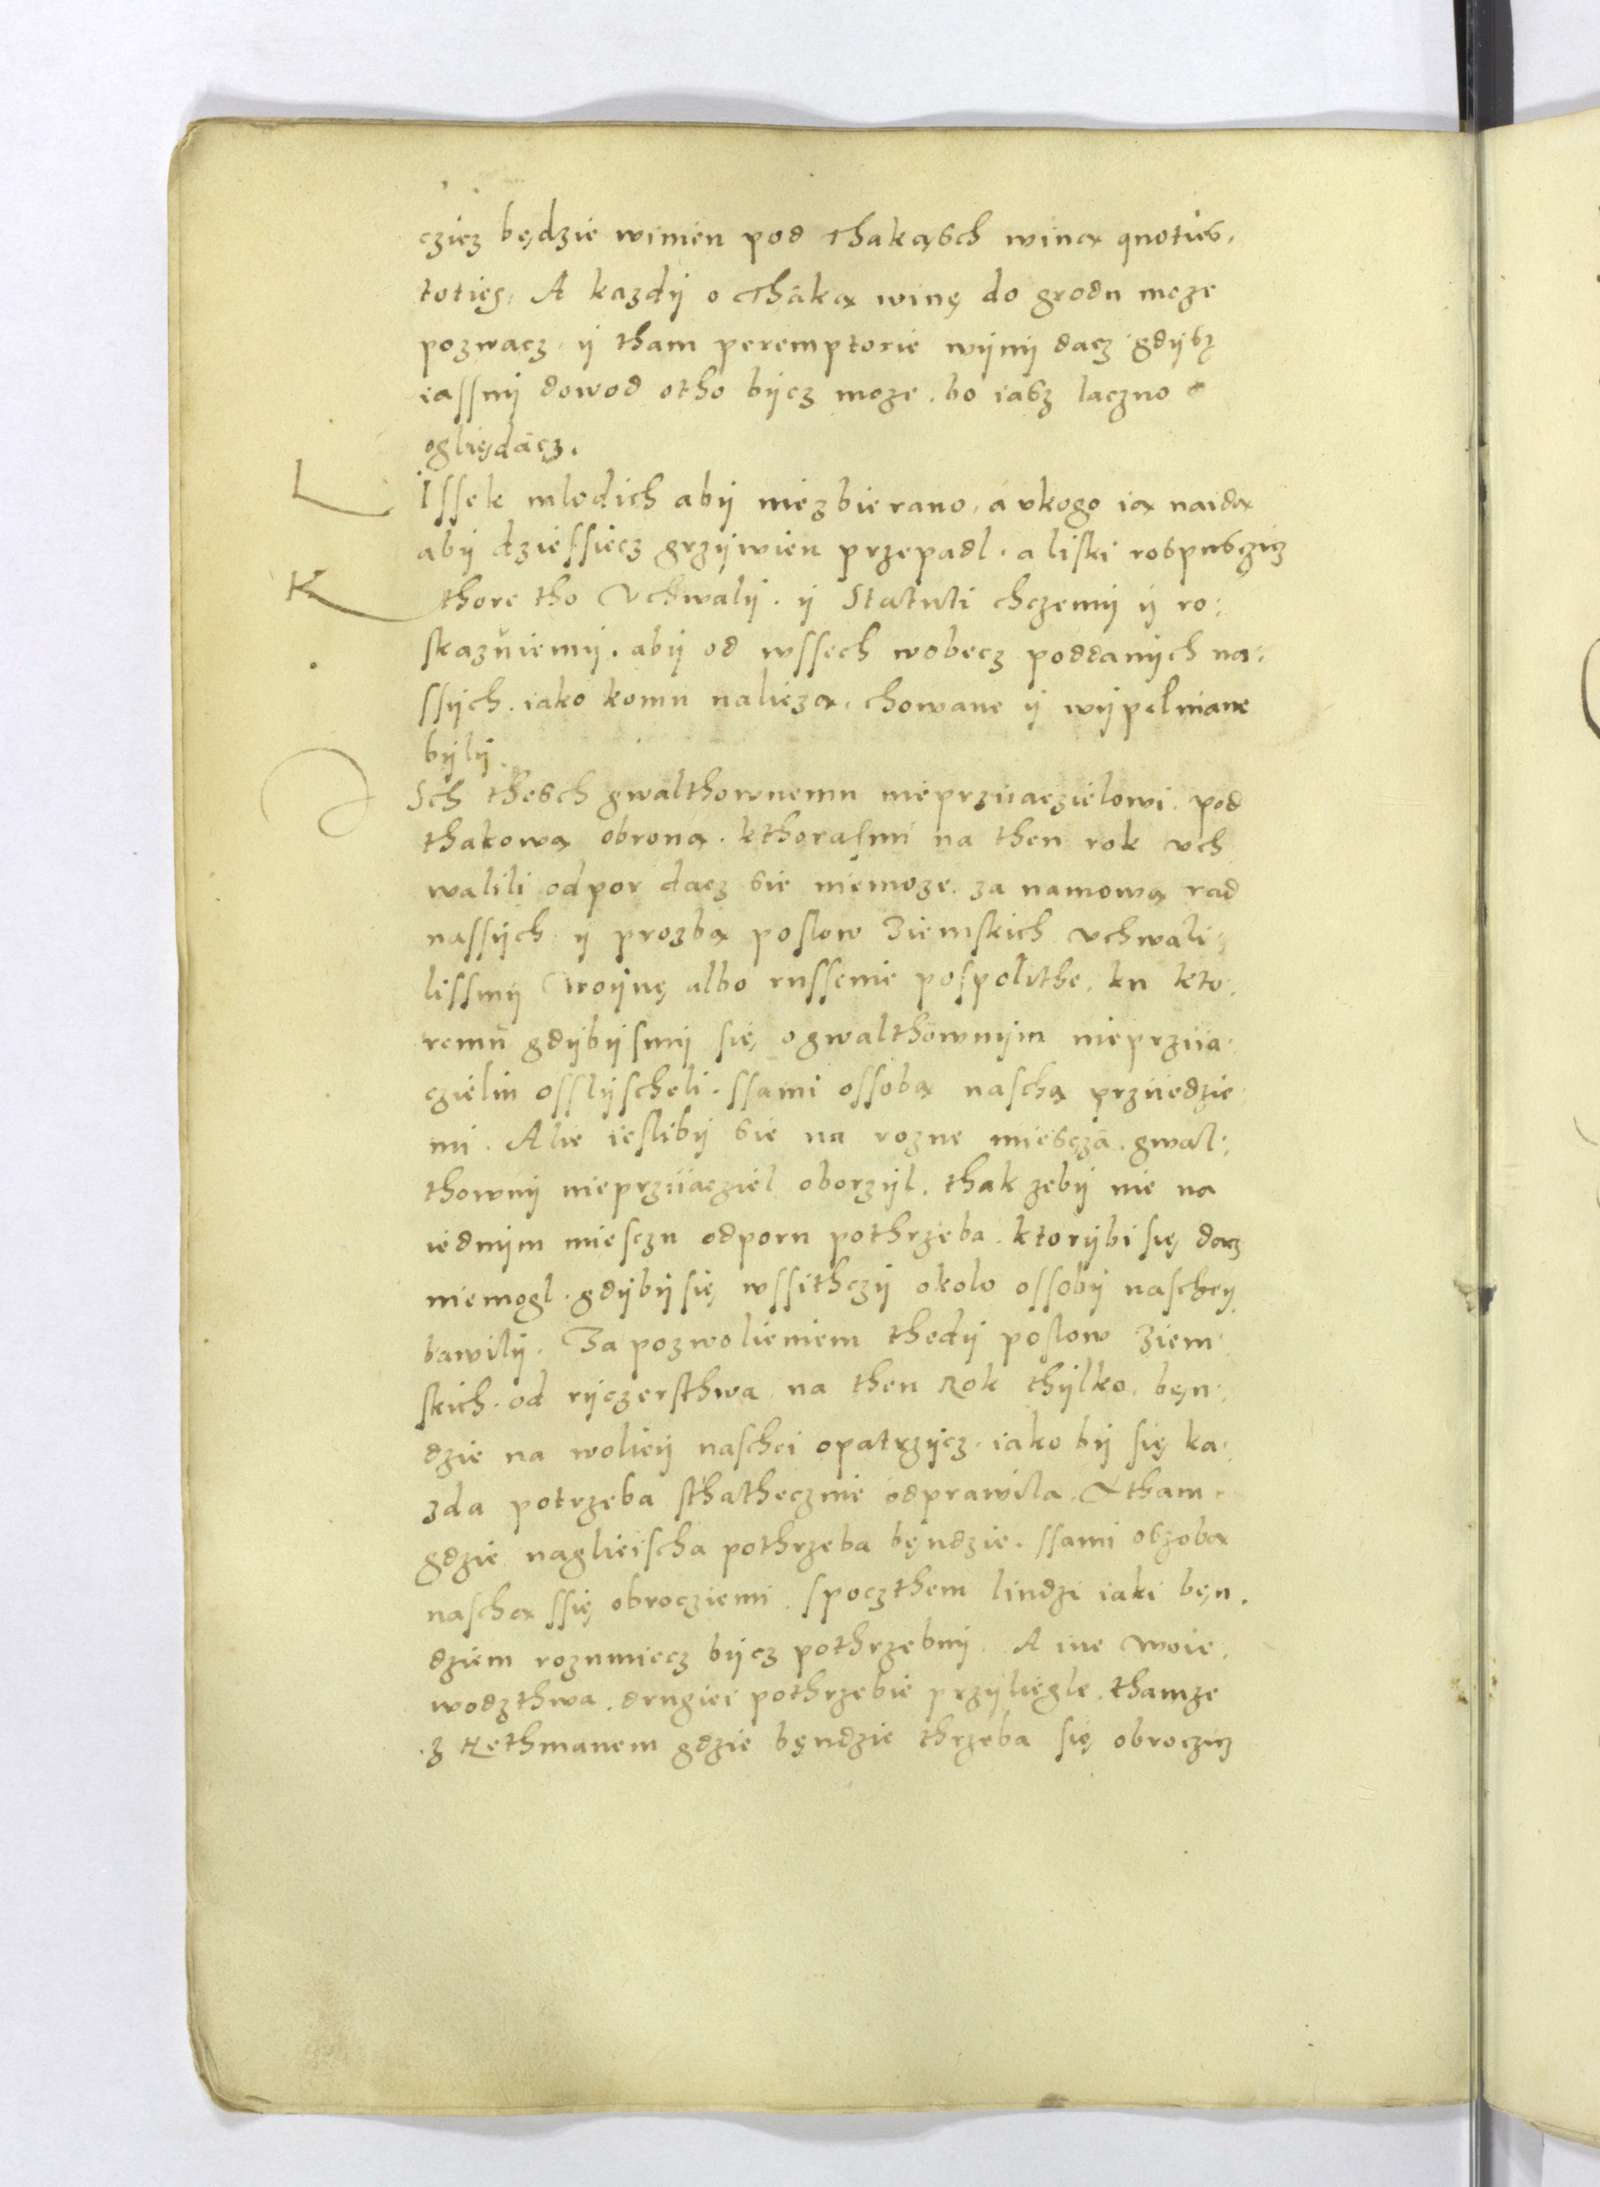 cziez będzie winien pod Thakąsch winą quoties,
toties, A kazdÿ o Thaką winę do grodu może
pozwacz ÿ tham peremptorie wÿnÿ dacz gdÿbz
iassnÿ dowod otho bÿcz moze. bo iasz laczno
ogliędacz.
L Issek mlodich abÿ niezbierano, a vkogo ią naidą
abÿ dziessiecz grzÿwien przepadl. a liski rospusczicz
K thore tho Vchwalÿ. ÿ Statuti chczemÿ ÿ ro:
skazuiemÿ. abÿ od wssech wobecz poddanÿch na:
ssÿch. iako komu naliezą, chowane ÿ wÿpelniane
bÿlÿ.
Sch thesch gwalthownemu nieprziiaczielowi. pod
thakową obroną. kthorasmi na then rok vch
walili odpor dacz sie niemoze. za namową rad
nassÿch ÿ prozbą poslow Ziemskich vchwali:
lissmÿ Woÿnę albo russenie pospolithe, ku kto:
remu gdÿbÿsmÿ się, ogwalthownÿm nieprziia:
czieliu osslÿscheli. ssami ossobą naschą prziiedzie
mi. Alie iesliby sie na rozne miescza. gwal:
thownÿ nieprziiacziel oborzÿl. thak zebÿ nie na
iednÿm miesczu odporu pothrzeba. ktorÿbi się dacz
niemogl. gdÿbÿ się wssithczÿ okolo ossobÿ nascheÿ
bawilÿ. Za pozwolieniem thedÿ poslow Ziem:
skich. od rÿczersthwa na then Rok thÿlko, bęn:
dzie na wolieÿ naschei opatrzÿcz. iako bÿ się ka:
zda potrzeba sthathecznie odprawila. Y tham
gdzie naglieischa pothrzeba będzie. ssami obzobą
naschą ssię obrocziemi. spoczthem liudzi iaki bęn.
dziem rozumiecz bÿcz pothrzebnÿ. A ine woie.
wodzthwa. drugiei pothrzebie przÿliegle. thamze
z Hethmanem gdzie bęndzie thrzeba się obroczicz